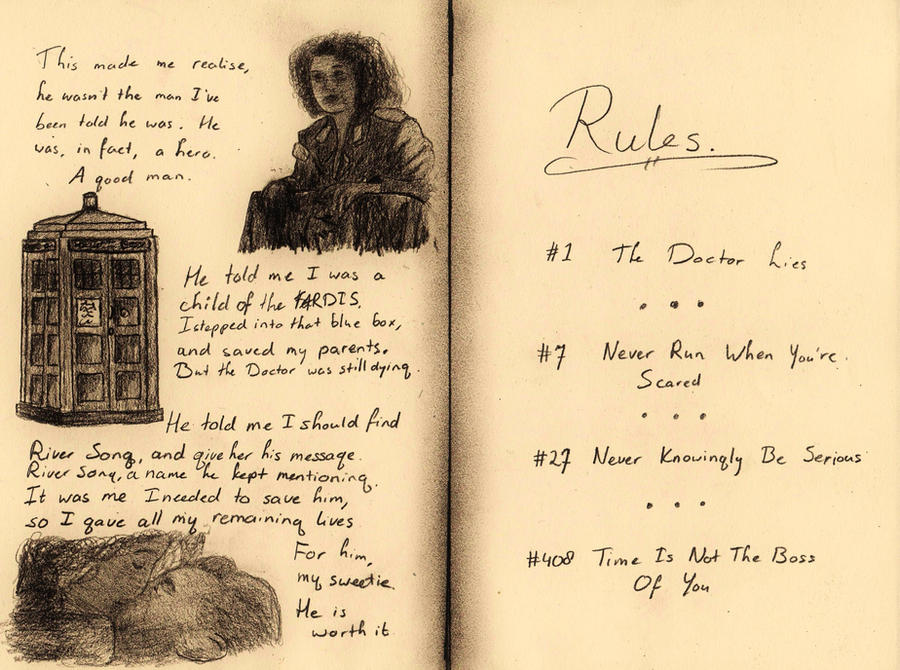 This made me realise,
he wasn't the man I've
been told he was. He
was, in fact, a hero.
A good man.
He told me I was a
child of the TARDIS.
I stepped into that blue box,
and saved my parents.
But the Doctor was still dying.
He told me I should find
River Song, and give her his message.
River Song, a name he kept mentioning.
It was me I needed to save him,
so I gave all my remaining lives
For him,
my sweetie.
He is
worth it.
Rules.
#1 The Doctor Lies
• • •
#7 Never Run When You're.
Scared
• • •
#27 Never Knowingly Be Serious
• • •
#408 Time Is Not The Boss
Of You